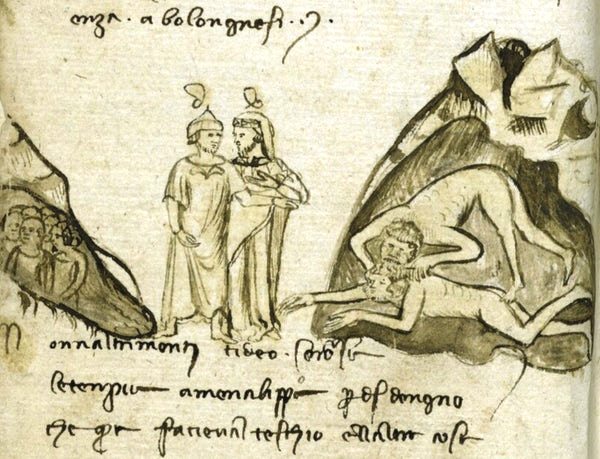 enza . a bolongnesi
N onnaltrimenti tideo . si rose
letenpie amenalippo p disdengno
che que facieval teschio ellaltre cose